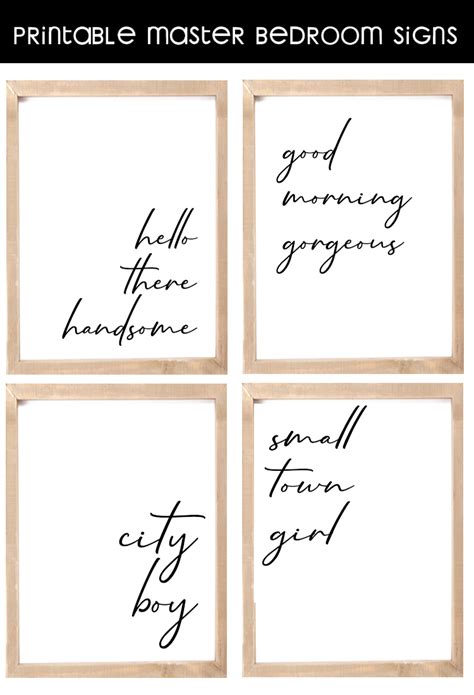 PRINTABLE MASTER BEDROOM SIGNS
hello
there
handsome
good
morning
gorgeous
city
boy
small
town
girl